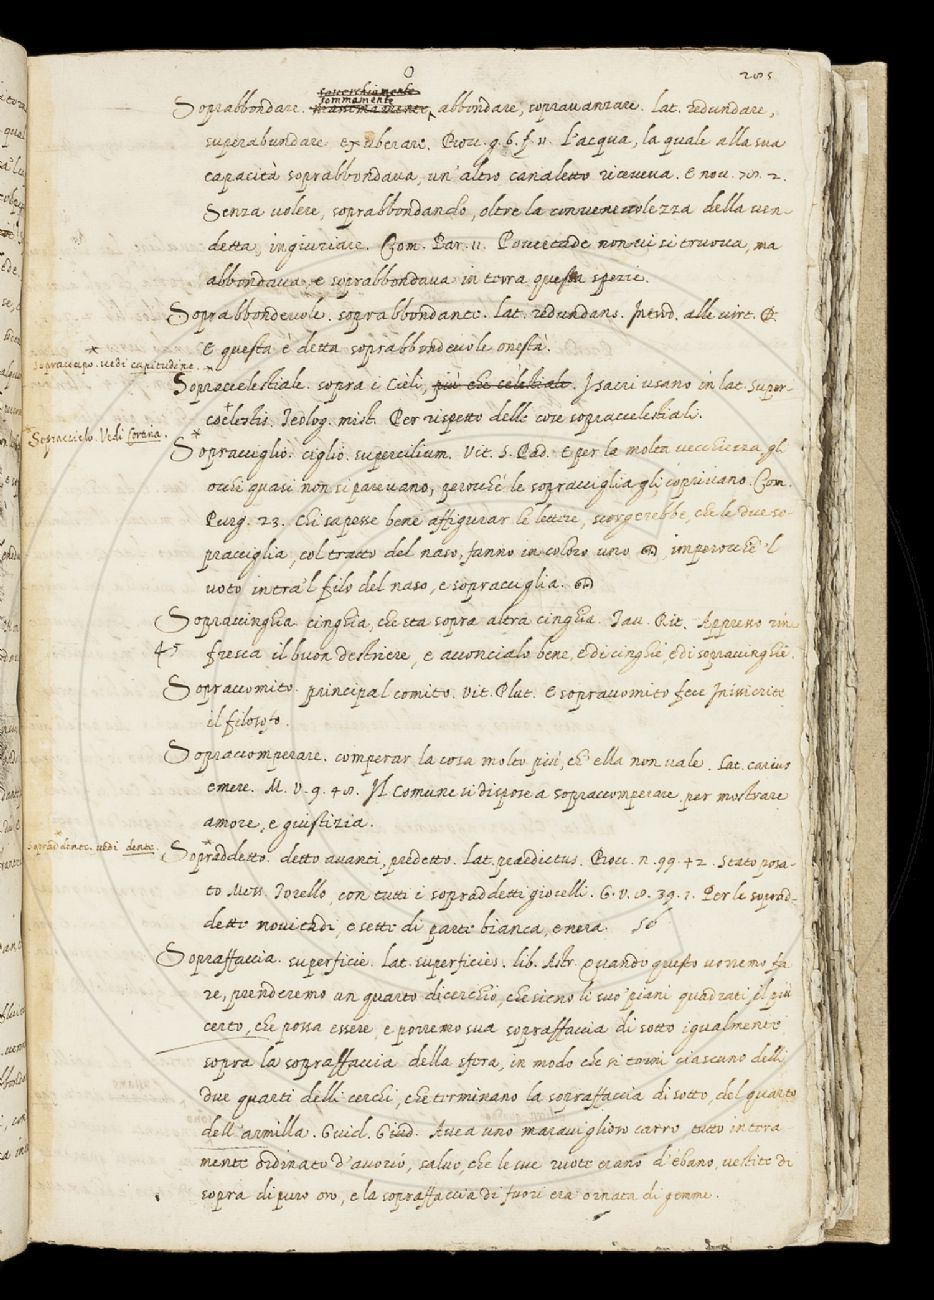 Soprabbondare. soverchiamente sommamente abbondare, sopravanzare. lat. redundare,
superabundare exuberare. Bocc. g. 6. f. 11. L'acqua, la quale alla sua
capacità soprabbondava, un' altro canaletto riceveva. E nov. 2.
Senza volere, soprabbondando, oltre la convenevolezza della ven-
detta, ingiuriare. Com. Par. 11. non vi si truova, ma
abbondava, e soprabbondava in terra questa spezie.
Soprabbondevole. soprabbondante. lat. redundans. Introd. alle virt.
E questa è detta soprabbondevole onestà.
Sopraccapo. vedi capitudine.
Sopraccelestiale. sopra i Cieli, più che celestiale. I sacri usano in lat. super-
coelestis. Teolog. mist. Per rispetto delle cose sopraccelestiali.
Sopraccielo. Vedi Cortina.
Sopracciglio. ciglio. supercilium. Vit. S. Pad. E per la molta vecchiezza, gli
occhi quasi non si parevano, perocchè le sopracciglia gli coprivano. Com.
Purg. 23. Chi sapesse bene affigurar le lettere, scorgerebbe, che le due so-
pracciglia, col tratto del naso, fanno in coloro uno imperocche 'l
voto intra 'l filo del naso, e sopracciglia.
Sopraccinghia. cinghia, che sta sopra altra cinghia. Tav. Rit. Appresso rin-
45 fresca il buon destriere, e acconcialo bene, e di cinghie, e di sopraccinghie.
Sopraccomito. principal comito. Vit. Plut. E sopraccomito fece
il filosofo.
Sopraccomperare. comperar la cosa molto più, ch' ella non vale. Lat. carius
emere. M. V. 9. 48. Il Comune si dispose a sopraccomperare, per mostrare
amore, e giustizia.
Sopraddente. vedi dente.
Sopraddetto. detto avanti, predetto. Lat. praedictus. Bocc. n. 99. 42. Stato posa-
to Mess. Torello, con tutti i sopraddetti gioielli. G. V. 8. 39. 1. Per le soprad-
dette novitadi, e sette di parte bianca, e nera. 56
Sopraffaccia. superficie. lat. superficies. lib. Astr. Quando questo vorremo fa
re, prenderemo un quarto di cerchio, che sieno li suo' piani quadrati, il più
certo, che possa essere, e porremo sua sopraffaccia di sotto igualmente
sopra la sopraffaccia della sfera, in modo che si torni ciascuno delli
due quarti delli cerchi, che terminano la sopraffaccia di sotto, del quarto
dell' armilla. Guid. Giud. Avea uno maraviglioso carro tutto intera
mente ordinato d'avorio, salvo, che le sue ruote erano d'ebano, vestite di
sopra di puro oro, e la sopraffaccia di fuori era ornata di gemme.